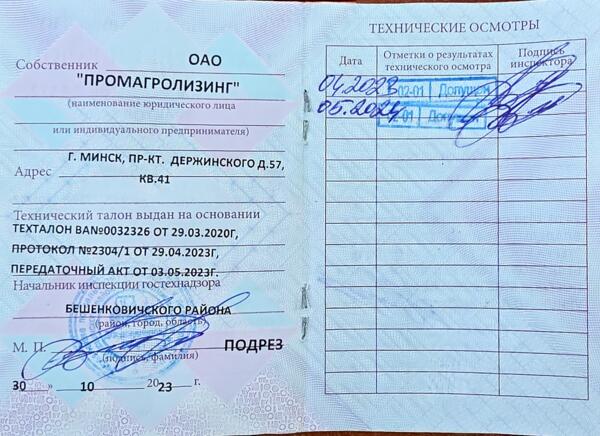 Собственник ОАО
"ПРОМАГРОЛИЗИНГ"
(наименование юридического лица
или индивидуального предпринимателя)
Г. МИНСК, ПР-КТ. ДЕРЖИНСКОГО Д.57,
Адрес КВ.41
Технический талон выдан на основании
ТЕХТАЛОН ВА№0032326 ОТ 29.03.2020Г,
ПРОТОКОЛ №2304/1 ОТ 29.04.2023Г,
ПЕРЕДАТОЧНЫЙ АКТ ОТ 03.05.2023Г.
Начальник инспекции гостехнадзора
БЕШЕНКОВИЧСКОГО РАЙОНА
(район, город, область)
М. П. ПОДРЕЗ
(подпись, фамилия)
30 » 10 2023 г.
ТЕХНИЧЕСКИЕ ОСМОТРЫ
Дата Отметки о результатах технического осмотра Подпись инспектора
04.2023 02-01 Допущен
05.2024 2-01 Допущен